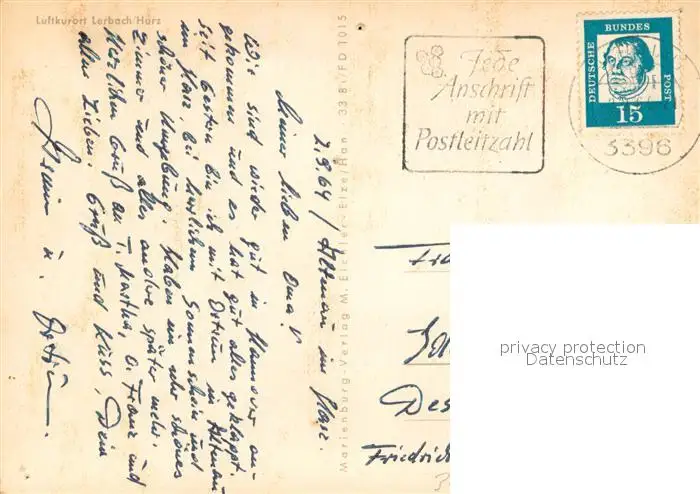 Luftkurort Lerbach/Harz
7.9.64 / Altenau im Harz.
Meine lieben Oma!
Wir sind wieder gut in Hannover an-
gekommen und es hat gut alles geklappt.
Seit gestern bin ich mit Ortrun in Altenau
im Harz bei herrlichem Sonnenschein und
schöner Umgebung. Haben ein sehr schönes
Zimmer und alles andre später mehr.
Herzlichen Gruß an T. Martha, O. Franz und
allen Lieben. Gruß und Kuss, Dein
u.
Marienburg-Verlag M. Eichler · Elze/Han 33 BY/FD 1015
Jede
Anschrift
mit
Postleitzahl
DEUTSCHE BUNDES POST
15
3396
Des
Friedrich
privacy protection
Datenschutz